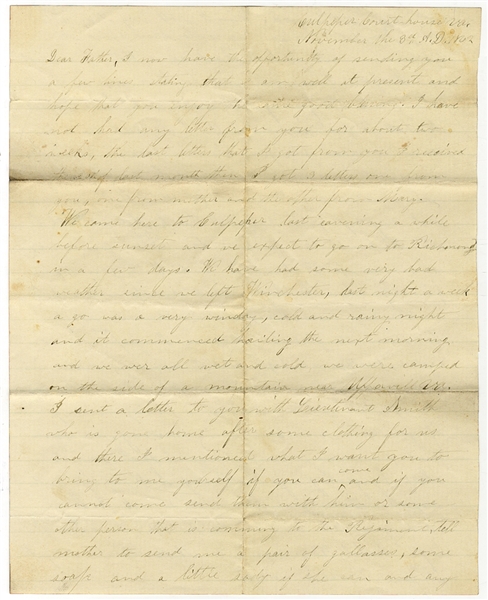 Culpeper Court house Va.
November the 3rd A.D. 186
Dear Father, I now have the oportunity of sending you
a few lines stating that I am well at present and
hope that you enjoy the same good blessing. I have
not had any letter from you for about two
weeks, the last letters that I got from you I received
of last month then I got letters one from
you, one from mother and the other from Mary.
We came here to Culpeper last eavening a while
before sunset and we expect to go on to Richmond
in a few days. We have had some very bad
wether since we left Winchester, last night a week
a go was a very winday, cold and rainy night
and it commenced hailing the next morning
and we wer all wet and cold we were camped
on the side of a mountain near Va.
I sent a letter to you with Lieutenant Smith
who is gone home after some clothing for us
and there I mentioned what I want you to
bring to me yourself if you can come and if you
cannot come send them with him or some
other person that is comming to the Rejiment, tell
mother to send me a pair of gallasses, some
soap and a little if she can and any